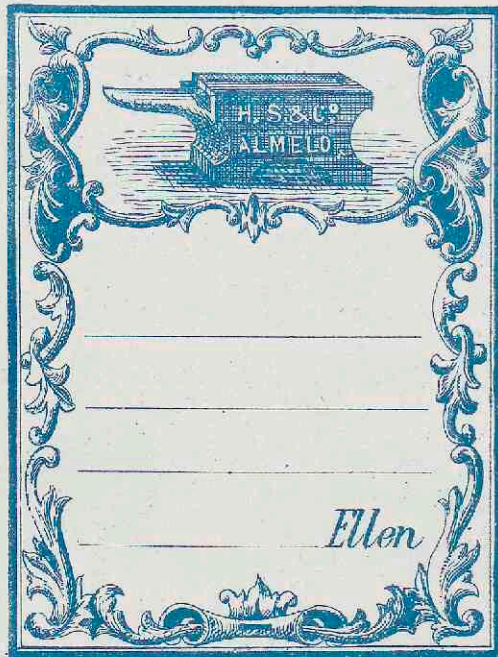 H. S. & Cº
ALMELO.
Ellen